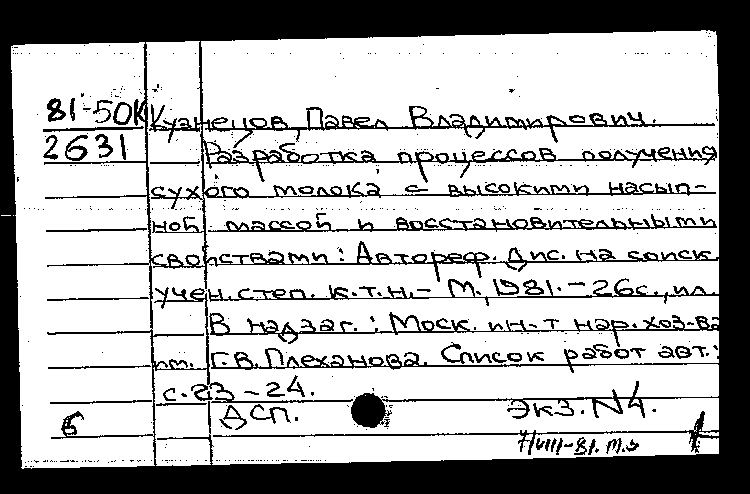 81-50К Кузнецов, Павел Владимирович.
2631 Разработка процессов получения
сухого молока с высокими насып-
ной массой и восстановительными
свойствами: Автореф. Дис. на соиск.
учен. степ. к.т.н. - М., 1981. - 26с., ил.
В надзаг.: Моск. ин-т нар. хоз-ва
им. Г.В. Плеханова. Список работ авт.:
с. 23-24.
Б ДСП. Экз. N4.
7/VIII-81.